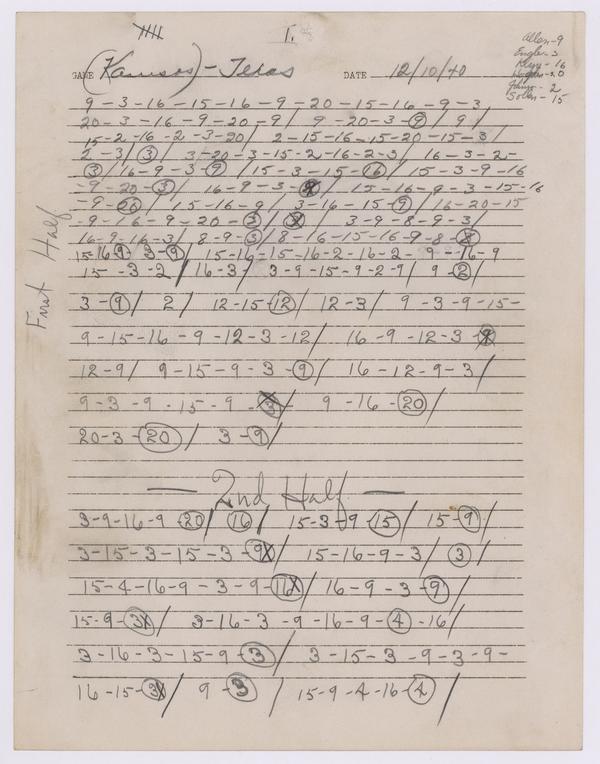 I.
GAME (Kansas) - Texas DATE 12/10/40
Allen - 9
Engle - 3
- 16
- 2
- 15
9-3-16-15-16-9-20-15-16-9-3
20-3-16-9-20-9/ 9-20-3-9/ 9/
15-2-16-2-3-20/ 2-15-16-15-20-15-3/
2-3/ 3/ 3-20-3-15-2-16-2-3/ 16-3-2-
3/ 16-9-3-9/ 15-3-15-16/ 15-3-9-16
-9-20-3/ 16-9-3-9/ 15-16-9-3-15-16
-9-20/ 15-16-9/ 3-16-15-9/ 16-20-15
-9-16-9-20-3/ 3/ 3-9-8-9-3/
16-9-16-3/ 8-9-3/ 8-16-15-16-9-8-8/
15-16-9-3-9/ 15-16-15-16-2-16-2-9-16-9
15-3-2/ 16-3/ 3-9-15-9-2-9/ 9-2/
3-9/ 2/ 12-15-12/ 12-3/ 9-3-9-15-
9-15-16-9-12-3-12/ 16-9-12-3-9
12-9/ 9-15-9-3-9/ 16-12-9-3/
9-3-9-15-9-3/ 9-16-20/
20-3-20/ 3-9/
First Half
— 2nd Half —
3-9-16-9-20/ 16/ 15-3-9-15/ 15-9/
3-15-3-15-3-9/ 15-16-9-3/ 3/
15-4-16-9-3-9-16/ 16-9-3-9/
15-9-3/ 3-16-3-9-16-9-4-16/
3-16-3-15-9-3/ 3-15-3-9-3-9-
16-15-3/ 9-3/ 15-9-4-16-4/